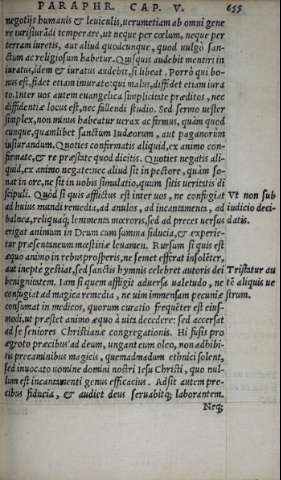 PARAPHR. CAP. V. 655
negotijs humanis & leuiculis, uerumetiam ab omni gene
re iurisiurādi temperare, ut neque per cœlum, neque per
terram iuretis, aut aliud quodcunque, quod uulgo san-
ctum ac religiosum habetur. Quisquis audebit mentiri in
iuratus, idem & iuratus audebit, si libeat. Porrò qui bo-
nus est, fidet etiam iniurato: qui malus, diffidet etiam iura
to. Inter uos autem euangelica simplicitate præditos, nec
diffidentiæ locus est, nec fallendi studio. Sed sermo uester
simplex, non minus habeatur uerax ac firmus, quàm quod
cunque, quamlibet sanctum Iudæorum, aut paganorum
iusiurandum. Quoties confirmatis aliquid, ex animo con-
firmate, & re præstate quod dicitis. Quoties negatis ali-
quid, ex animo negate: nec aliud sit in pectore, quàm so-
nat in ore, ne sit in uobis simulatio, quum sitis ueritatis di
scipuli. Quòd si quis afflictus est inter uos, ne confugiat
ad huius mundi remedia, ad anulos, ad incantamenta, ad
balnea, reliquaq; lenimenta mœroris, sed ad preces uersus
erigat animum in Deum cum summa fiducia, & experie-
tur præsentaneum mœstitiæ leuamen. Rursum si quis est
æquo animo in rebus prosperis, ne semet efferat insolēter,
aut ineptè gestiat, sed sanctis hymnis celebret autoris dei
benignitatem. Iam si quem affligit aduersa ualetudo, ne
confugiat ad magica remedia, ne uim immensam pecuniæ
consumat in medicos, quorum curatio frequēter est eius-
modi, ut præstet animo æquo à uita decedere: sed accersat
ad se seniores Christianæ congregationis. Hi fusis pro
ægroto precibus ad deum, ungant eum oleo, non adhibi-
tis precaminibus magicis, quemadmodum ethnici solent,
sed inuocato nomine domini nostri Iesu Christi, quo nul-
lum est incantamenti genus efficacius. Adsit autem pre-
cibus fiducia, & audiet deus seruabitq; laborantem.
Neq;
Vt non sub
iudicio deci-
datis.
Tristatur au
tē aliquis ue
strum.